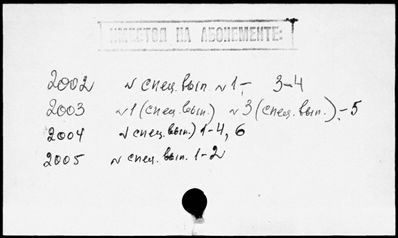 ИМЕЕТСЯ НА АБОНЕМЕНТЕ:
2002 № спец.вып. №1-, 3-4
2003 №1 (спец.вып.) №3 (спец.вып.),-5
2004 № спец.вып.) 1-4, 6
2005 № спец.вып. 1-2